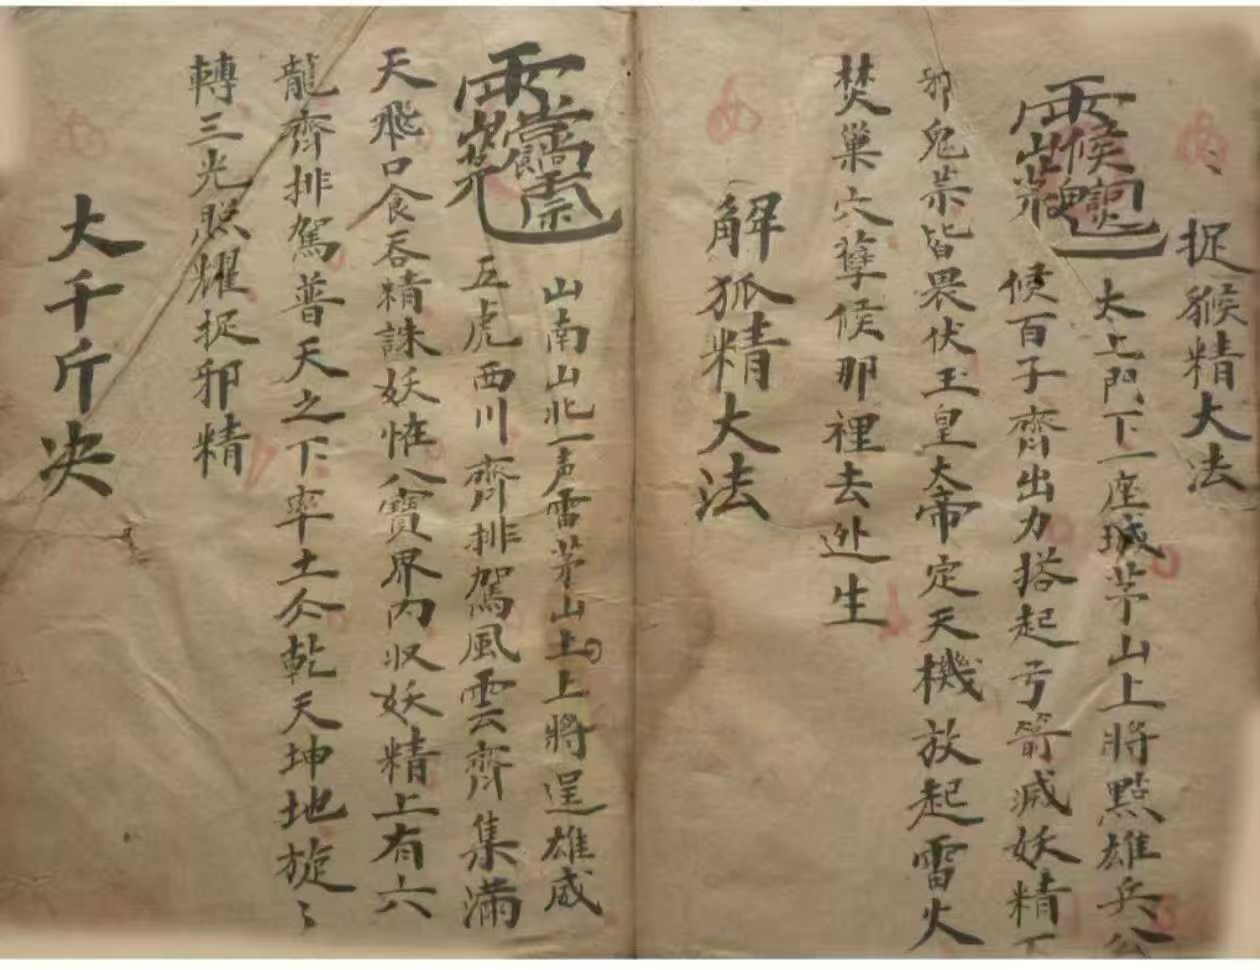 捉猴精大法
太上門下一座城茅山上將點雄兵公
候百子齊出力搭起弓箭滅妖精下
邪鬼祟皆畏伏玉皇大帝定天機放起雷火
焚巢穴孽候那裡去迯生
解狐精大法
山南山北一声雷茅山上上將逞雄威
五虎西川齊排駕風雲齊集滿
天飛口食吞精誅妖恠八寶界內収妖精上有六
龍齊排駕普天之下率土仒乾天坤地旋〻
轉三光照耀捉邪精
大千斤决